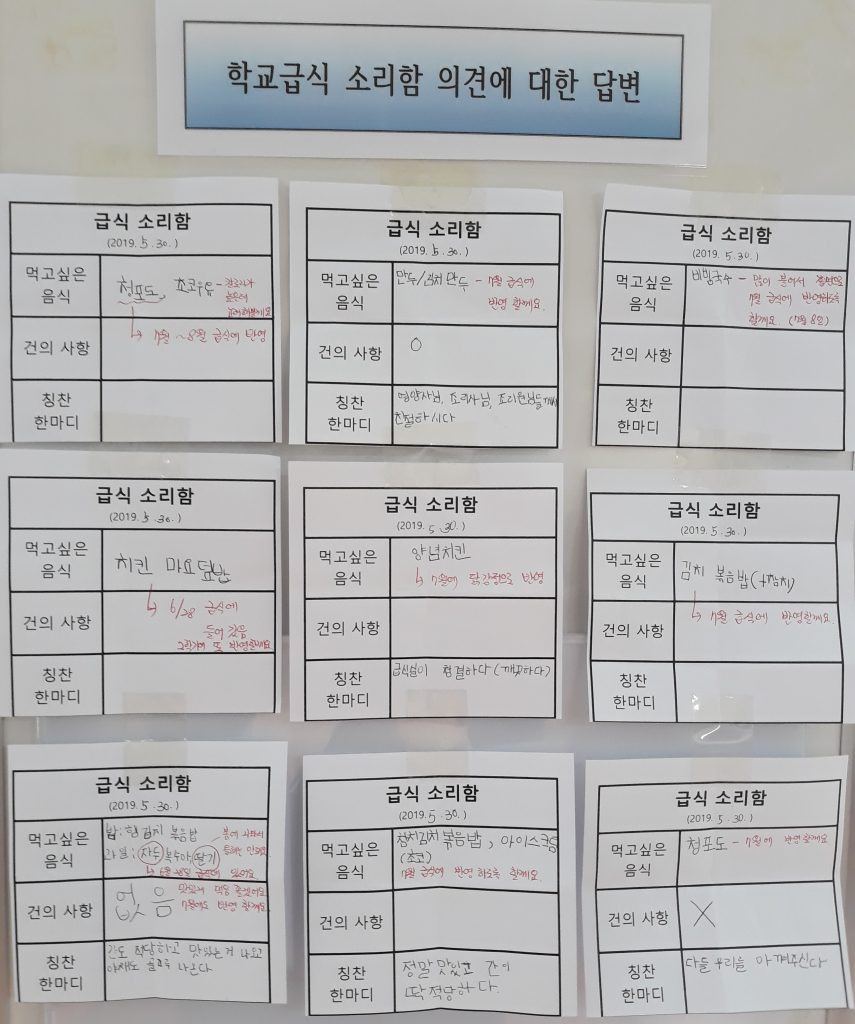 학교급식 소리함 의견에 대한 답변
급식 소리함
(2019. 5. 30.)
먹고싶은 음식
청포도, 초코우유 -
→ 7월 ~ 8월 급식에 반영
건의 사항
칭찬 한마디
급식 소리함
(2019. 5. 30.)
먹고싶은 음식
만두/김치만두 - 7월 급식에
반영 할께요.
건의 사항
O
칭찬 한마디
영양사님, 조리사님, 조리원님들께서
친절하시다
급식 소리함
(2019. 5. 30.)
먹고싶은 음식
비빔국수 - 많이 불어서
7월 급식에 반영하도록
할께요. (7월 8일)
건의 사항
칭찬 한마디
급식 소리함
(2019. 5. 30.)
먹고싶은 음식
치킨 마요덮밥
→ 6/28 급식에
들어 갔음
2학기에 또 반영할께요
건의 사항
칭찬 한마디
급식 소리함
(2019. 5. 30.)
먹고싶은 음식
양념치킨
→ 7월에 닭강정으로 반영
건의 사항
칭찬 한마디
급식실이 청결하다 (깨끗하다)
급식 소리함
(2019. 5. 30.)
먹고싶은 음식
김치 볶음밥(+참치)
→ 7월 급식에 반영할께요.
건의 사항
칭찬 한마디
급식 소리함
(2019. 5. 30.)
먹고싶은 음식
밥: 햄김치 볶음밥
과일: 자두 복숭아 딸기
급식에 있어요.
건의 사항
없음
맛있게 먹음 좋겠어요
7월에도 반영 할께요.
칭찬 한마디
간도 적당하고 맛있는거 나오고
야채도 골고루 나온다
급식 소리함
(2019. 5. 30.)
먹고싶은 음식
참치김치볶음밥, 아이스크림
(초코)
7월 급식에 반영 하도록 할께요.
건의 사항
칭찬 한마디
정말 맛있고 간이
딱 적당하다.
급식 소리함
(2019. 5. 30.)
먹고싶은 음식
청포도 - 7월에 반영할께요
건의 사항
X
칭찬 한마디
다들 우리를 아껴주신다